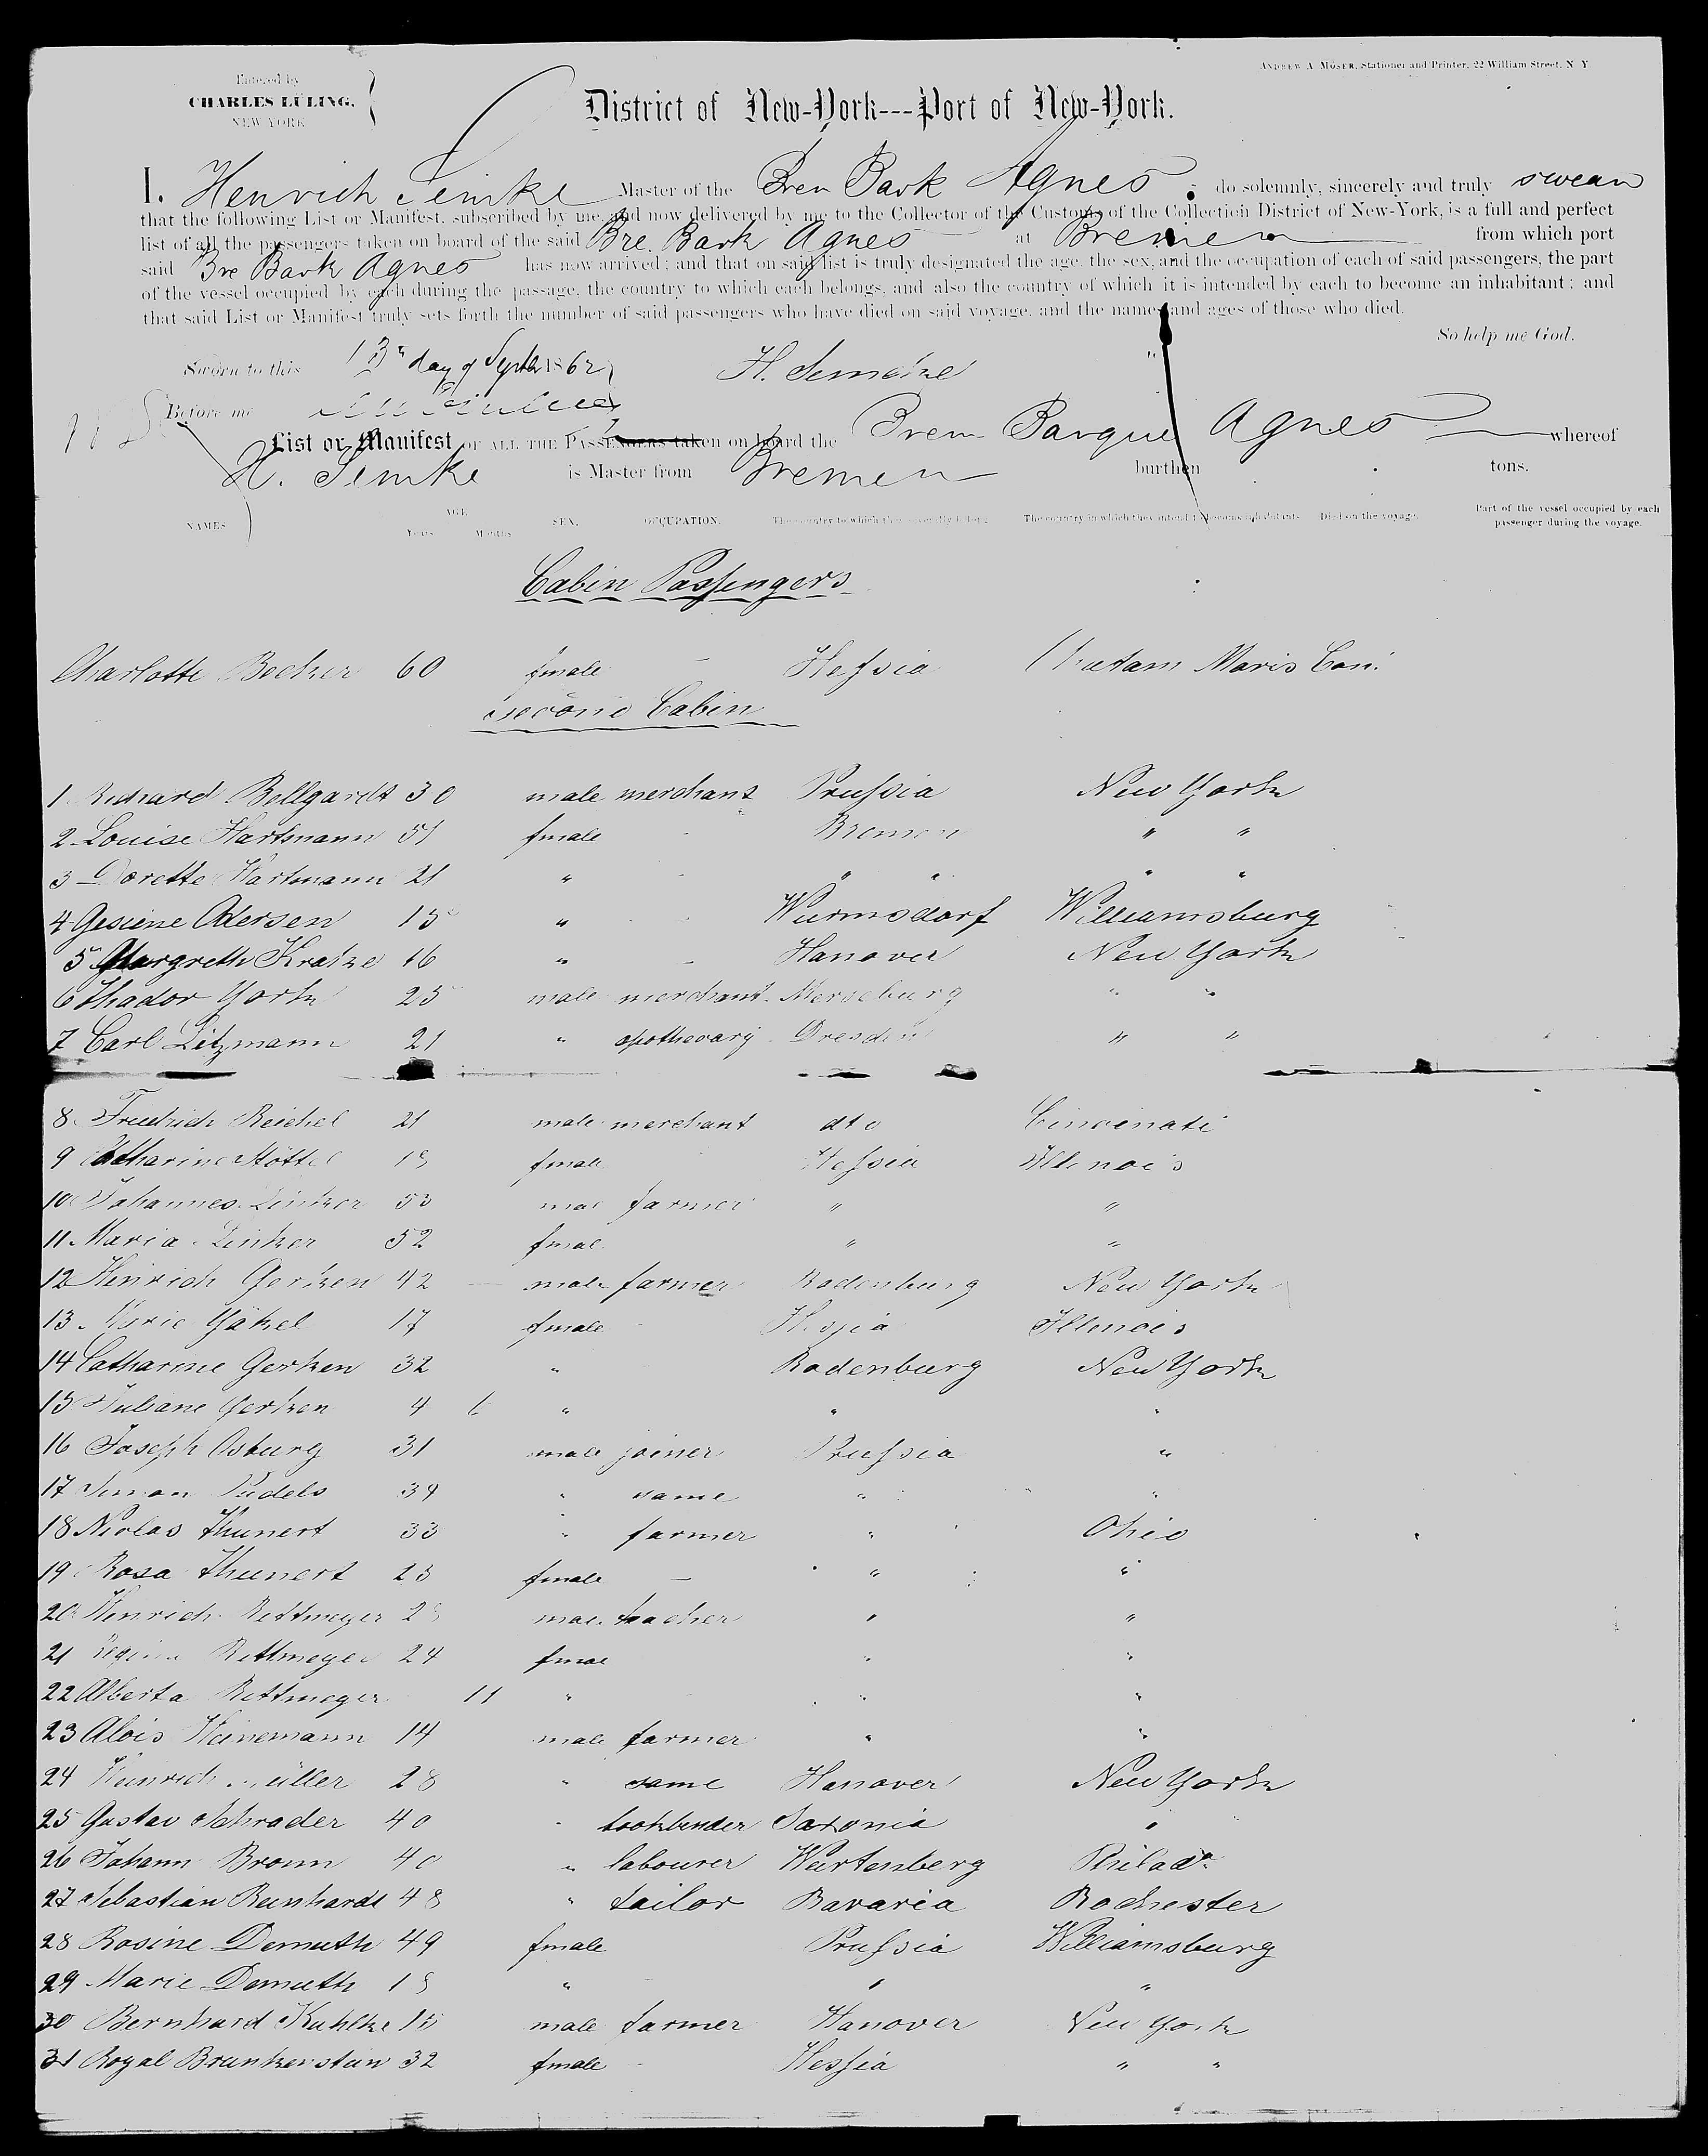 Entered by
CHARLES LULING,
NEW YORK
ANDREW A MOSER, Stationer and Printer, 22 William Street, N Y
District of New-York---Port of New-York.
I. Henrich Semke Master of the Brem Bark Agnes do solemnly, sincerely and truly swear
that the following List or Manifest, subscribed by me, and now delivered by me to the Collector of the Customs of the Collection District of New-York, is a full and perfect
list of all the passengers taken on board of the said Bre. Bark Agnes at Bremen from which port
said Bre Bark Agnes has now arrived; and that on said list is truly designated the age, the sex, and the occupation of each of said passengers, the part
of the vessel occupied by each during the passage, the country to which each belongs, and also the country of which it is intended by each to become an inhabitant; and
that said List or Manifest truly sets forth the number of said passengers who have died on said voyage, and the names and ages of those who died.
So help me God.
Sworn to this 13 day of Septbr 1862
H. Semke
Before me
List or Manifest OF ALL THE PASSENGERS taken on board the Brem Barque Agnes whereof
H. Semke is Master from Bremen burthen tons.
NAMES AGE Years Months SEX. OCCUPATION. The country to which they severally belong The country in which they intend to become inhabitants Died on the voyage Part of the vessel occupied by each passenger during the voyage.
Cabin Passengers
Charlotte Becker 60 fmale – Hessia
second Cabin
1 Richard Bellgardt 30 male merchant Prussia New York
2 Louise Hartmann 51 fmale - Bremen " "
3 Dorette Hartmann 21 " - " " " "
4 Gesiene Odersen 15 " - Wurmsdorf Williamsburg
5 Margreth Kratze 16 " – Hanover New York
6 Thador York 25 male merchant Merseburg " "
7 Carl Litzmann 21 " apothecary Dresden " "
8 Friedrich Reichel 21 male merchant dto Cincinati
9 Catharine fmale Hessia Illinois
10 Johannes Linker 53 mal farmer " "
11 Maria Linker 52 fmal " "
12 Hinrich Gerken 42 male farmer Rodenburg New York
13 Marie Jäkel 17 fmale – Hessia Illinois
14 Catharine Gerken 32 " Rodenburg New York
15 Juliane Gerken 4 6 " " "
16 Joseph Osburg 31 male joiner Prussia "
17 Simon Pudels 34 " same " "
18 Niclas Thunert 33 " farmer " Ohio
19 Rosa Thunert 23 fmale – " "
20 Henrich Rettmeyer male teacher " "
21 Regina Rettmeyer 24 fmal " "
22 Alberta Rettmeyer 11 " " "
23 Alois Heinemann 14 male farmer " "
24 Heinrich Müller 28 " same Hanover New York
25 Gustav Schrader 40 " bookbinder Saxonia "
26 Johann Bronn 40 " labourer Wurtenberg Philada
27 Sebastian Reinhardt 48 " tailor Bavaria Rochester
28 Rosine Demuth 49 fmale Prussia Williamsburg
29 Marie Demuth 18 " " "
30 Bernhard Kuhlke male farmer Hanover New York
31 Royal Brunkenstein 32 fmale - Hessia " "